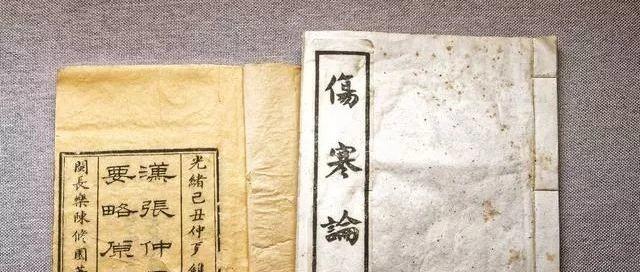 傷寒論
光緒己丑仲夏
漢張仲
要略原
閩長樂陳修園